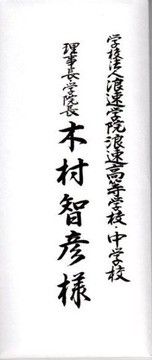 学校法人浪速学院浪速高等学校・中学校
理事長・学院長
木村智彦様